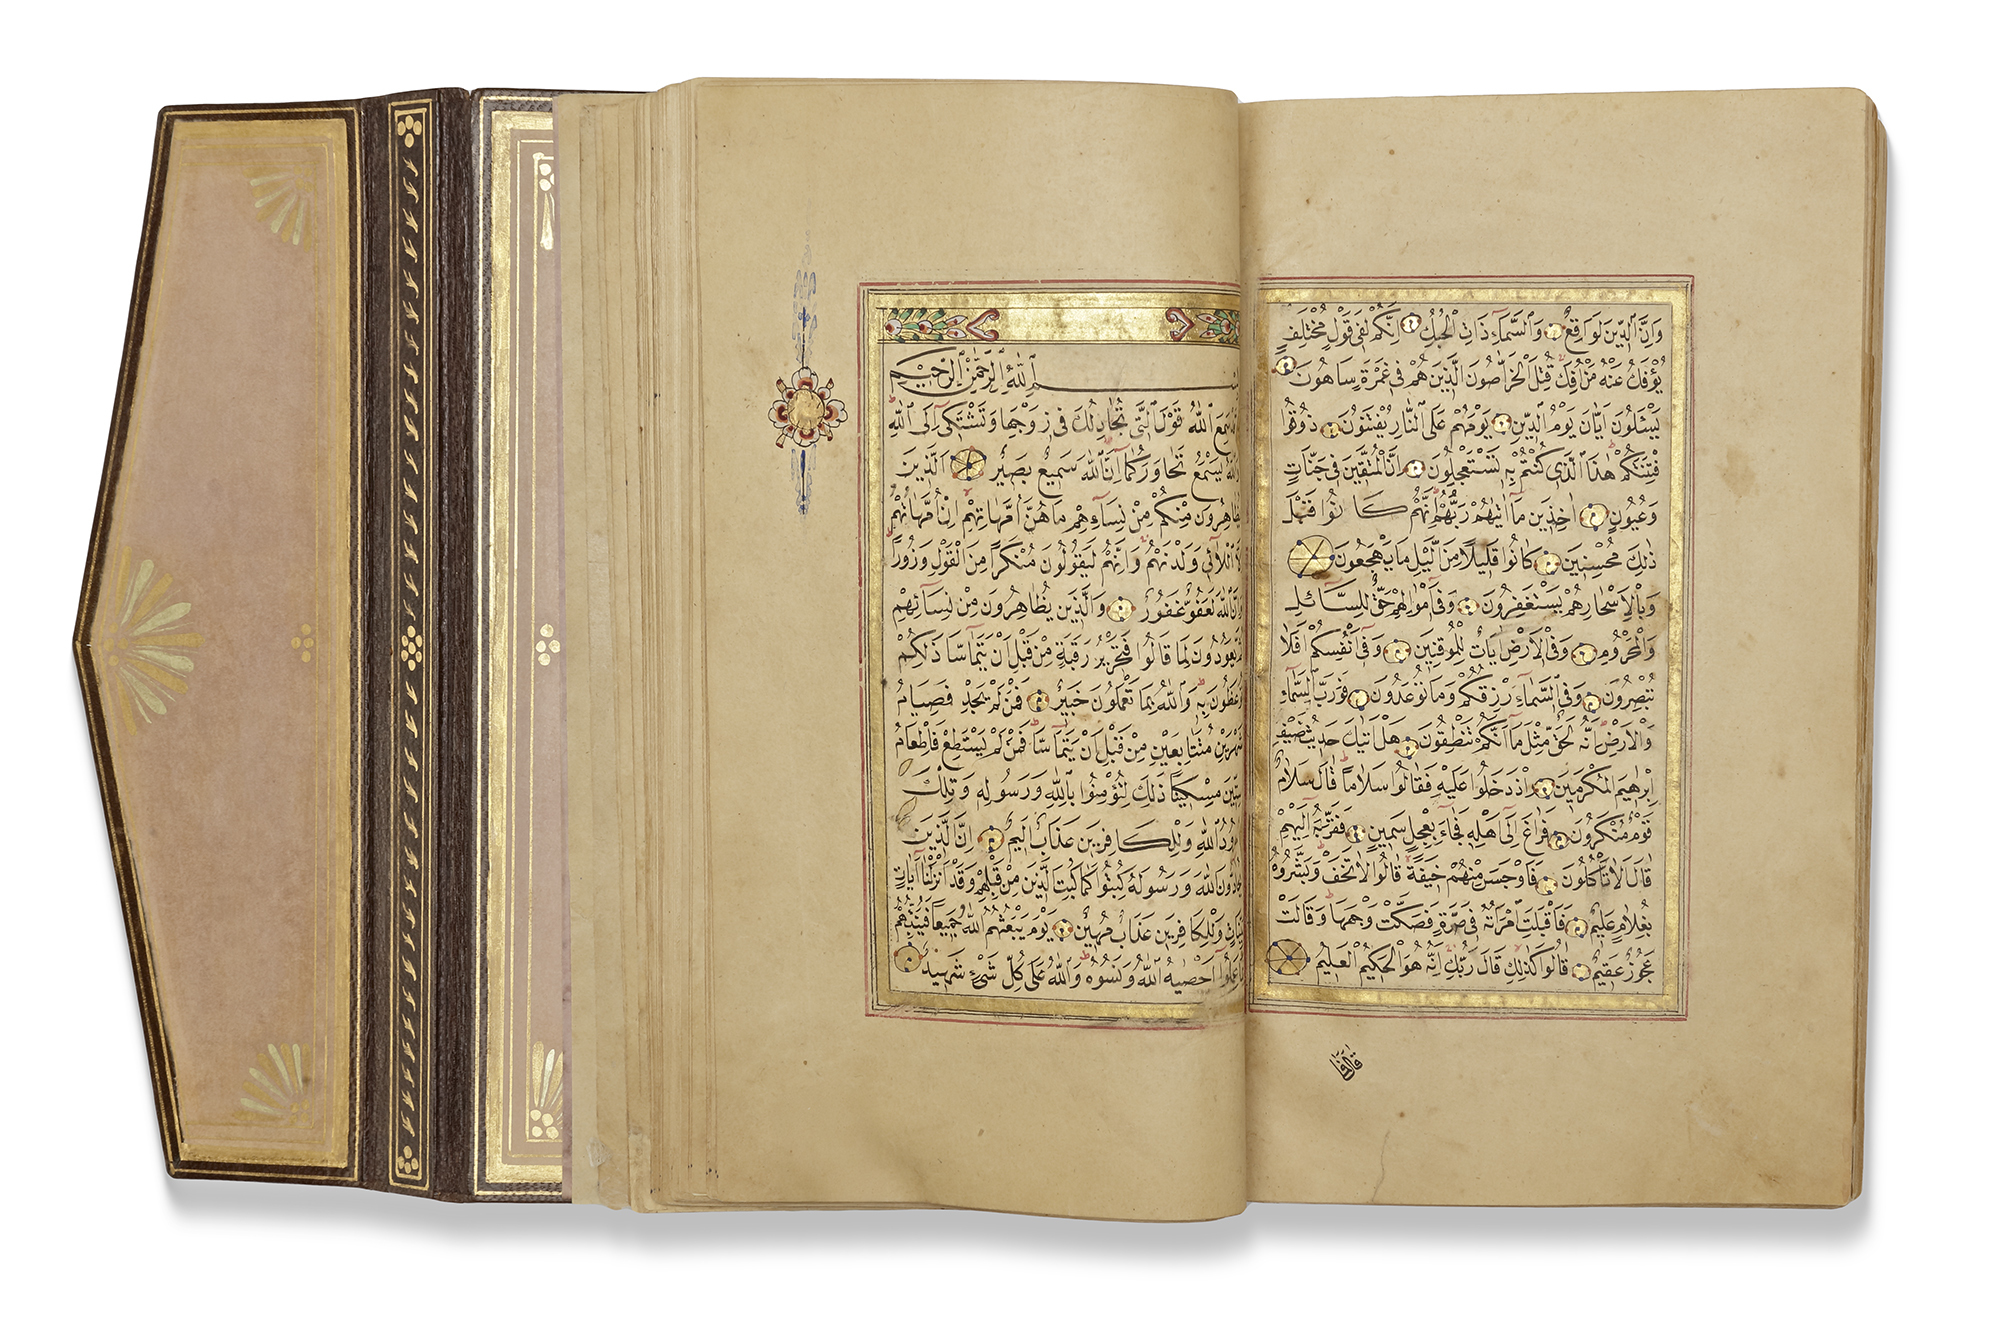 وَاِنَّ الدّٖينَ لَوَاقِعٌ وَالسَّمَآءِ ذَاتِ الْحُبُكِ اِنَّكُمْ لَفٖى قَوْلٍ مُخْتَلِفٍ
يُؤْفَكُ عَنْهُ مَنْ اُفِكَ قُتِلَ الْخَرَّاصُونَ الَّذٖينَ هُمْ فٖى غَمْرَةٍ سَاهُونَ
يَسْئَلُونَ اَيَّانَ يَوْمُ الدّٖينِ يَوْمَ هُمْ عَلَى النَّارِ يُفْتَنُونَ ذُوقُوا
فِتْنَتَكُمْ هٰذَا الَّذٖى كُنْتُمْ بِهٖ تَسْتَعْجِلُونَ اِنَّ الْمُتَّقٖينَ فٖى جَنَّاتٍ
وَعُيُونٍ اٰخِذٖينَ مَآ اٰتٰيهُمْ رَبُّهُمْ اِنَّهُمْ كَانُوا قَبْلَ
ذٰلِكَ مُحْسِنٖينَ كَانُوا قَلٖيلًا مِنَ الَّيْلِ مَا يَهْجَعُونَ
وَبِالْاَسْحَارِ هُمْ يَسْتَغْفِرُونَ وَفٖٓى اَمْوَالِهِمْ حَقٌّ لِلسَّآئِلِ
وَالْمَحْرُومِ وَفِى الْاَرْضِ اٰيَاتٌ لِلْمُوقِنٖينَ وَفٖٓى اَنْفُسِكُمْ اَفَلَا
تُبْصِرُونَ وَفِى السَّمَآءِ رِزْقُكُمْ وَمَا تُوعَدُونَ فَوَرَبِّ السَّمَآءِ
وَالْاَرْضِ اِنَّهُ لَحَقٌّ مِثْلَ مَآ اَنَّكُمْ تَنْطِقُونَ هَلْ اَتٰيكَ حَدٖيثُ ضَيْفِ
اِبْرٰهٖيمَ الْمُكْرَمٖينَ اِذْ دَخَلُوا عَلَيْهِ فَقَالُوا سَلَامًا قَالَ سَلَامٌ
قَوْمٌ مُنْكَرُونَ فَرَاغَ اِلٰٓى اَهْلِهٖ فَجَآءَ بِعِجْلٍ سَمٖينٍ فَقَرَّبَهُٓ اِلَيْهِمْ
قَالَ اَلَا تَاْكُلُونَ فَاَوْجَسَ مِنْهُمْ خٖيفَةً قَالُوا لَا تَخَفْ وَبَشَّرُوهُ
بِغُلَامٍ عَلٖيمٍ فَاَقْبَلَتِ امْرَاَتُهُ فٖى صَرَّةٍ فَصَكَّتْ وَجْهَهَا وَقَالَتْ
عَجُوزٌ عَقٖيمٌ قَالُوا كَذٰلِكِ قَالَ رَبُّكِ اِنَّهُ هُوَ الْحَكٖيمُ الْعَلٖيمُ
قَالَ فَمَا
بِسْمِ اللهِ الرَّحْمٰنِ الرَّحٖيمِ
قَدْ سَمِعَ اللهُ قَوْلَ الَّتٖى تُجَادِلُكَ فٖى زَوْجِهَا وَتَشْتَكٖٓى اِلَى اللهِ
وَاللهُ يَسْمَعُ تَحَاوُرَكُمَا اِنَّ اللهَ سَمٖيعٌ بَصٖيرٌ اَلَّذٖينَ
يُظَاهِرُونَ مِنْكُمْ مِنْ نِسَآئِهِمْ مَا هُنَّ اُمَّهَاتِهِمْ اِنْ اُمَّهَاتُهُمْ
اِلَّا الّٰٓئٖى وَلَدْنَهُمْ وَاِنَّهُمْ لَيَقُولُونَ مُنْكَرًا مِنَ الْقَوْلِ وَزُورًا
وَاِنَّ اللهَ لَعَفُوٌّ غَفُورٌ وَالَّذٖينَ يُظَاهِرُونَ مِنْ نِسَآئِهِمْ
ثُمَّ يَعُودُونَ لِمَا قَالُوا فَتَحْرٖيرُ رَقَبَةٍ مِنْ قَبْلِ اَنْ يَتَمَآسَّا ذٰلِكُمْ
تُوعَظُونَ بِهٖ وَاللهُ بِمَا تَعْمَلُونَ خَبٖيرٌ فَمَنْ لَمْ يَجِدْ فَصِيَامُ
شَهْرَيْنِ مُتَتَابِعَيْنِ مِنْ قَبْلِ اَنْ يَتَمَآسَّا فَمَنْ لَمْ يَسْتَطِعْ فَاِطْعَامُ
سِتّٖينَ مِسْكٖينًا ذٰلِكَ لِتُؤْمِنُوا بِاللهِ وَرَسُولِهٖ وَتِلْكَ
حُدُودُ اللهِ وَلِلْكَافِرٖينَ عَذَابٌ اَلٖيمٌ اِنَّ الَّذٖينَ
يُحَآدُّونَ اللهَ وَرَسُولَهُ كُبِتُوا كَمَا كُبِتَ الَّذٖينَ مِنْ قَبْلِهِمْ وَقَدْ اَنْزَلْنَآ اٰيَاتٍ
بَيِّنَاتٍ وَلِلْكَافِرٖينَ عَذَابٌ مُهٖينٌ يَوْمَ يَبْعَثُهُمُ اللهُ جَمٖيعًا فَيُنَبِّئُهُمْ
بِمَا عَمِلُوا اَحْصٰيهُ اللهُ وَنَسُوهُ وَاللهُ عَلٰى كُلِّ شَىْءٍ شَهٖيدٌ